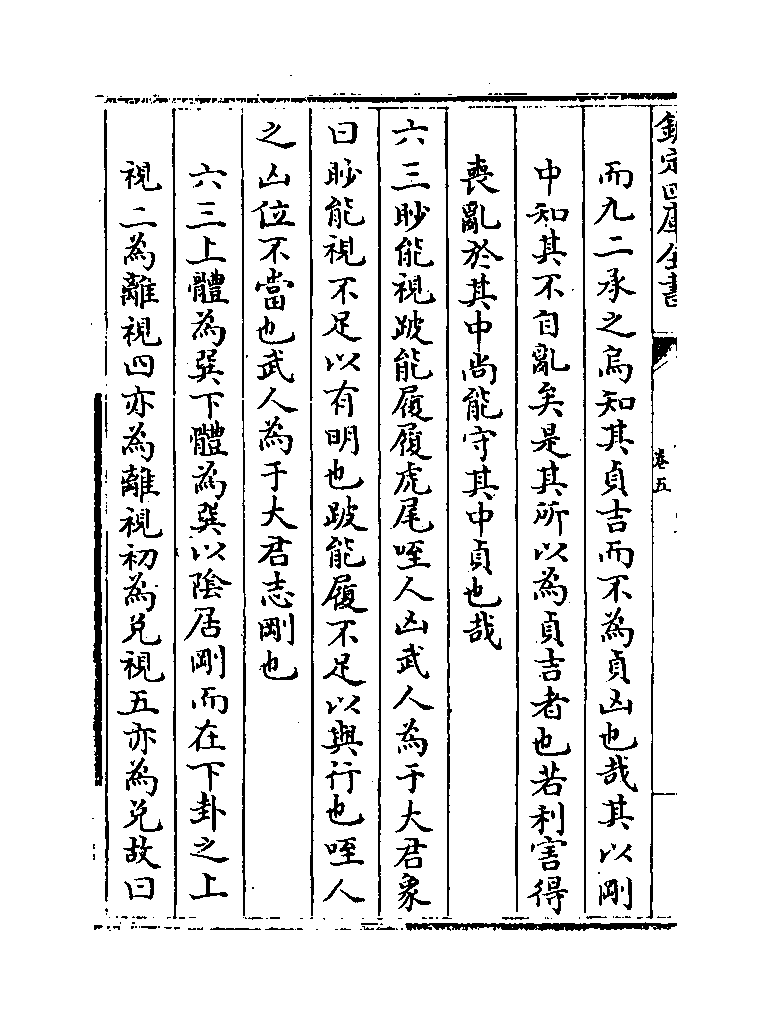 欽定四庫全書
卷五
而九二承之烏知其貞吉而不為貞凶也哉其以剛
中知其不自亂矣是其所以為貞吉者也若利害得
喪亂於其中尚能守其中貞也哉
六三眇能視跛能履履虎尾咥人凶武人為于大君象
曰眇能視不足以有明也跛能履不足以與行也咥人
之凶位不當也武人為于大君志剛也
六三上體為巽下體為巽以陰居剛而在下卦之上
視二為離視四亦為離視初為兌視五亦為兌故曰